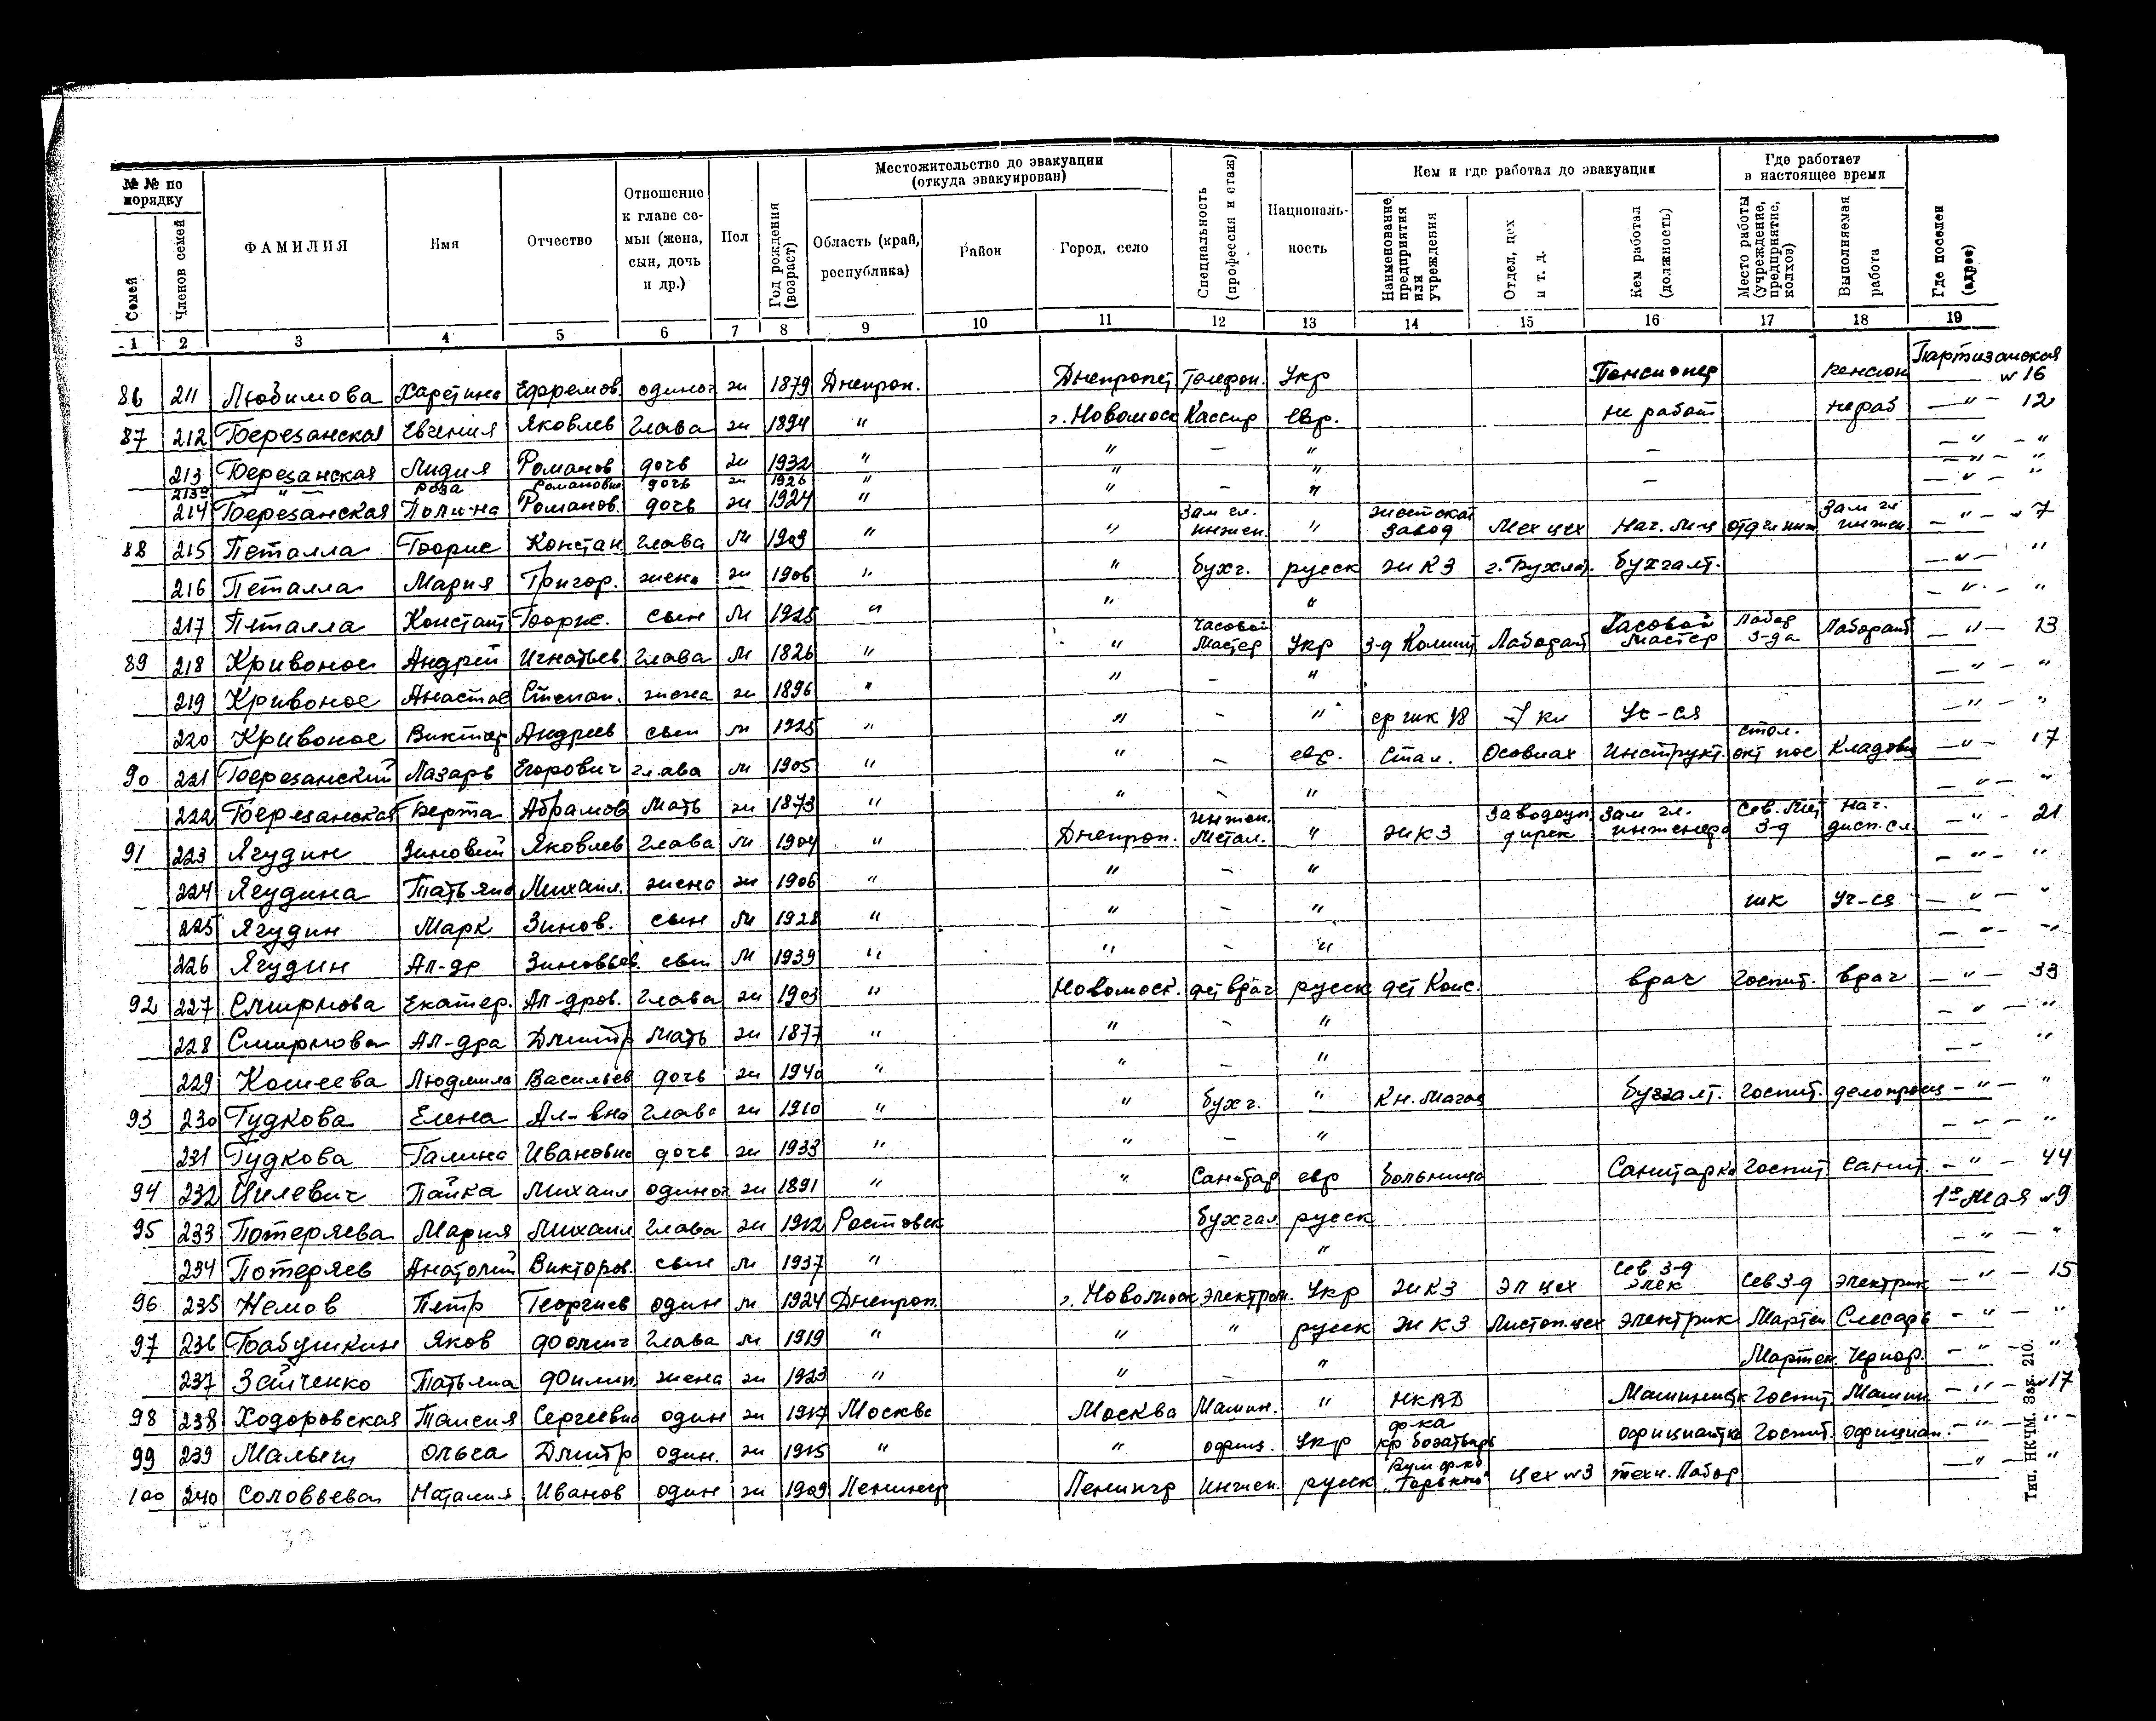 № № по порядку
Семей
Членов семей
ФАМИЛИЯ
Имя
Отчество
Отношение к главе семьи (жена, сын, дочь и др.)
Пол
Год рождения (возраст)
Местожительство до эвакуации (откуда эвакуирован)
Область (край, республика)
Район
Город, село
Специальность (профессия и стаж)
Националь-ность
Кем и где работал до эвакуации
Наименование предприятия или учреждения
Отдел, цех и т. д.
Кем работал (должность)
Где работает в настоящее время
Место работы (учреждение, предприятие, колхоз)
Выполняемая работа
Где поселен (адрес)
1 2 3 4 5 6 7 8 9 10 11 12 13 14 15 16 17 18 19
86 211 Любимова Харетина Ефремов. одиноч ж 1879 Днепроп. Днепропет Телефон. Укр Пенсионер пенсион Партизанская № 16
87 212 Березанская Евгения Яковлев Глава ж 1894 " г. Новомоск Кассир евр. не работ не раб — " — 12
213 Березанская Лидия Романов дочь ж 1932 " " — " — — " — "
213а — " — Роза Романовна дочь ж 1926 " " " — " — "
214 Березанская Полина Романов. дочь ж 1924 " " — " — — " — "
88 215 Петалла Борис Констан глава м 1909 " " Зам гл. инжен. " жестекат завод Мех цех Нач. М.ц отд гл инж. Зам гл. инжен. — " — 7
216 Петалла Мария Григор. жена ж 1906 " " бухг. русск ЖКЗ г. Бухгал. бухгалт. — " — "
217 Петалла Констант Борис. сын м 1928 " " " — " — "
89 218 Кривонос Андрей Игнатьев Глава м 1826 " " Часовой Мастер Укр З-д Комит Лаборат Часовой мастер Лабор З-да Лаборант — " — 13
219 Кривонос Анастас Степан. жена ж 1896 " " — " — " — "
220 Кривонос Виктор Андреев сын м 1925 " " — " ср шк №8 7 кл Уч-ся — " — "
90 221 Березанский Лазарь Егорович глава м 1905 " " — евр. Стал. Осовиах Инструкт. стол. Кладовщ — " — 17
222 Березанская Берта Абрамов Мать ж 1873 " " — " — " — "
91 223 Ягудин Зиновий Яковлев Глава м 1904 " Днепроп. инжен. Метал. " ЖКЗ Заводоуп дирек Зам гл. инженера Сев. Мет З-д Нач. дисп. сл — " — 21
224 Ягудина Татьяна Михаил. жена ж 1906 " " — " — " — "
225 Ягудин Марк Зинов. сын м 1928 " " — " шк Уч-ся — " — "
226 Ягудин Ал-др Зиновьев. сын м 1939 " " — " — " — "
92 227 Смирнова Екатер. Ал-дров. Глава ж 1903 " Новомоск. дет врач русск дет Конс. Врач Госпит. Врач — " — 33
228 Смирнова Ал-дра Дмитр Мать ж 1877 " " — " — " — "
229 Кошеева Людмила Васильев дочь ж 1940 " " — " — " "
93 230 Гудкова Елена Ал-вна глава ж 1910 " " бухг. " Кн. Магаз бухгалт. Госпит. делопроиз — " — "
231 Гудкова Галина Ивановна дочь ж 1933 " " — " — " — "
94 232 Цилевич Пайка Михаил одиноч ж 1891 " " Санитар евр больница Санитарка Госпит. Санит. — " — 44
95 233 Потеряева Мария Михаил Глава ж 1912 Ростовск бухгал русск 1го Мая № 9
234 Потеряев Анатолий Викторов. сын м 1937 " — " — " — "
96 235 Немов Петр Георгиев один м 1924 Днепроп. г. Новомоск электром. Укр ЖКЗ Эл цех Сев З-д Элек Сев З-д электрик — " — 15
97 236 Бабушкин Яков Фомич Глава м 1919 " " " русск ЖКЗ Листоп. цех электрик Мартен Слесарь — " — "
237 Зайченко Татьяна Филип. жена ж 1923 " " — " Мартен. Чернор. — " — "
98 238 Ходоровская Таисия Сергеевна один ж 1917 Москве Москва Машин. " НКВД Машинистк Госпит Машин. — " — № 17
99 239 Малыш Ольга Дмитр один. ж 1915 " " офиц. Укр ф-ка кр богатырь официантка Госпит. официан. — " — "
100 240 Соловьева Наталия Иванов один ж 1909 Ленингр Ленингр Инжен. русск "Горького" Цех № 3 техн. Лабор — " — "
Тип. НКЧМ. Зак. 210.
30